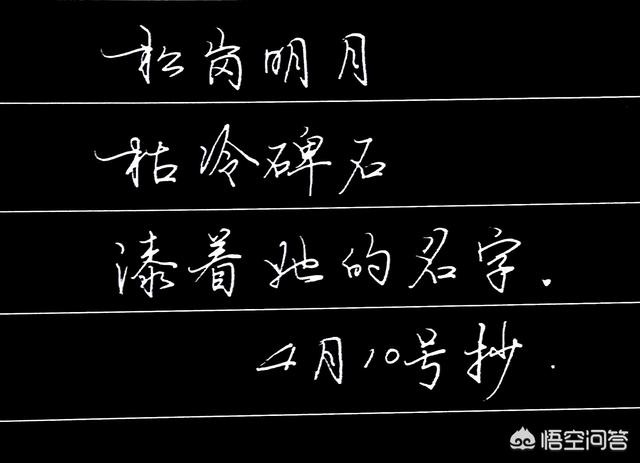 松岗明月
枯冷碑石
漆着她的名字.
4月10号抄.
悟空问答